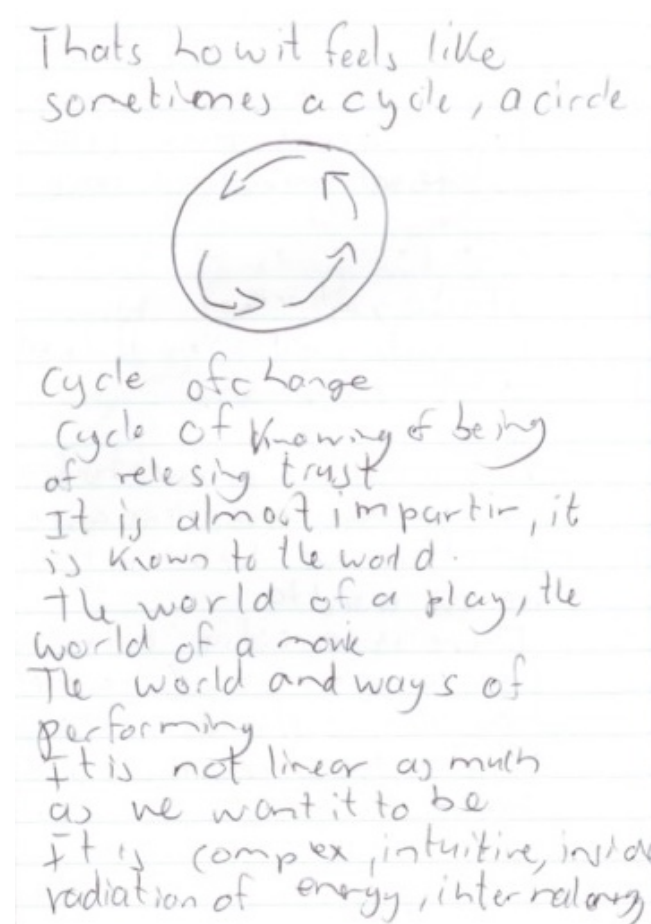 Thats how it feels like
sometimes a cycle, a circle
Cycle of change
Cycle of knowing of being
of relesing trust
It is almost impartir, it
is known to the world.
The world of a play, the
world of a movie
The world and ways of
performing
It is not linear as much
as we want it to be
It is complex, intuitive, inside
radiation of energy, internal